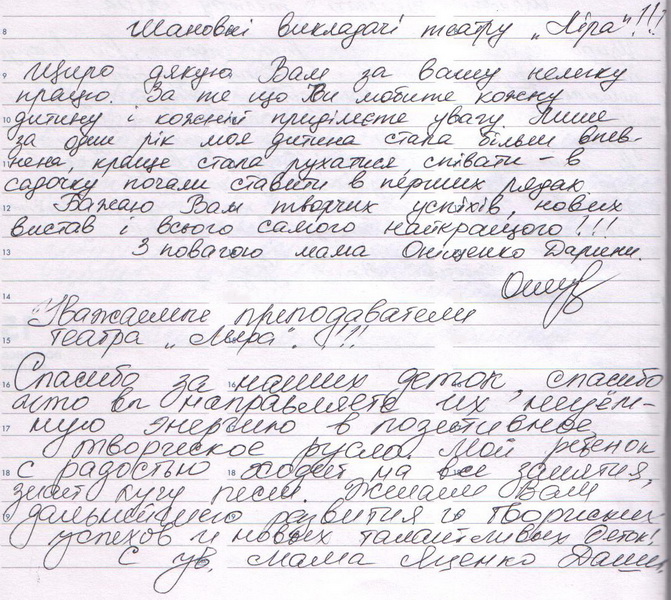 Шановні викладачі театру „Ліра"!!!
Щиро дякую Вам за вашу нелегку
працю. За те що Ви любите кожну
дитину і кожній приділяєте увагу. Лише
за один рік моя дитина стала більш впев-
нена, краще стала рухатися, співати – в
садочку почали ставити в перших рядах
Бажаю Вам творчих успіхів, нових
вистав і всього самого найкращого!!!
З повагою мама Онищенко Дарини.
Уважаемые преподаватели
театра „Лира". !!!
Спасибо за наших деток, спасибо
что вы направляете их
ную энергию в позетивное
творческое русло. Мой ребёнок
с радостью ходит на все занятия,
знает кучу песен. Желаем Вам
дальнейшего развития и творческих
успехов и новых талантливых деток!
С ув. мама Яценко Даши
8
9
10
11
12
13
14
15
16
16
17
18
18